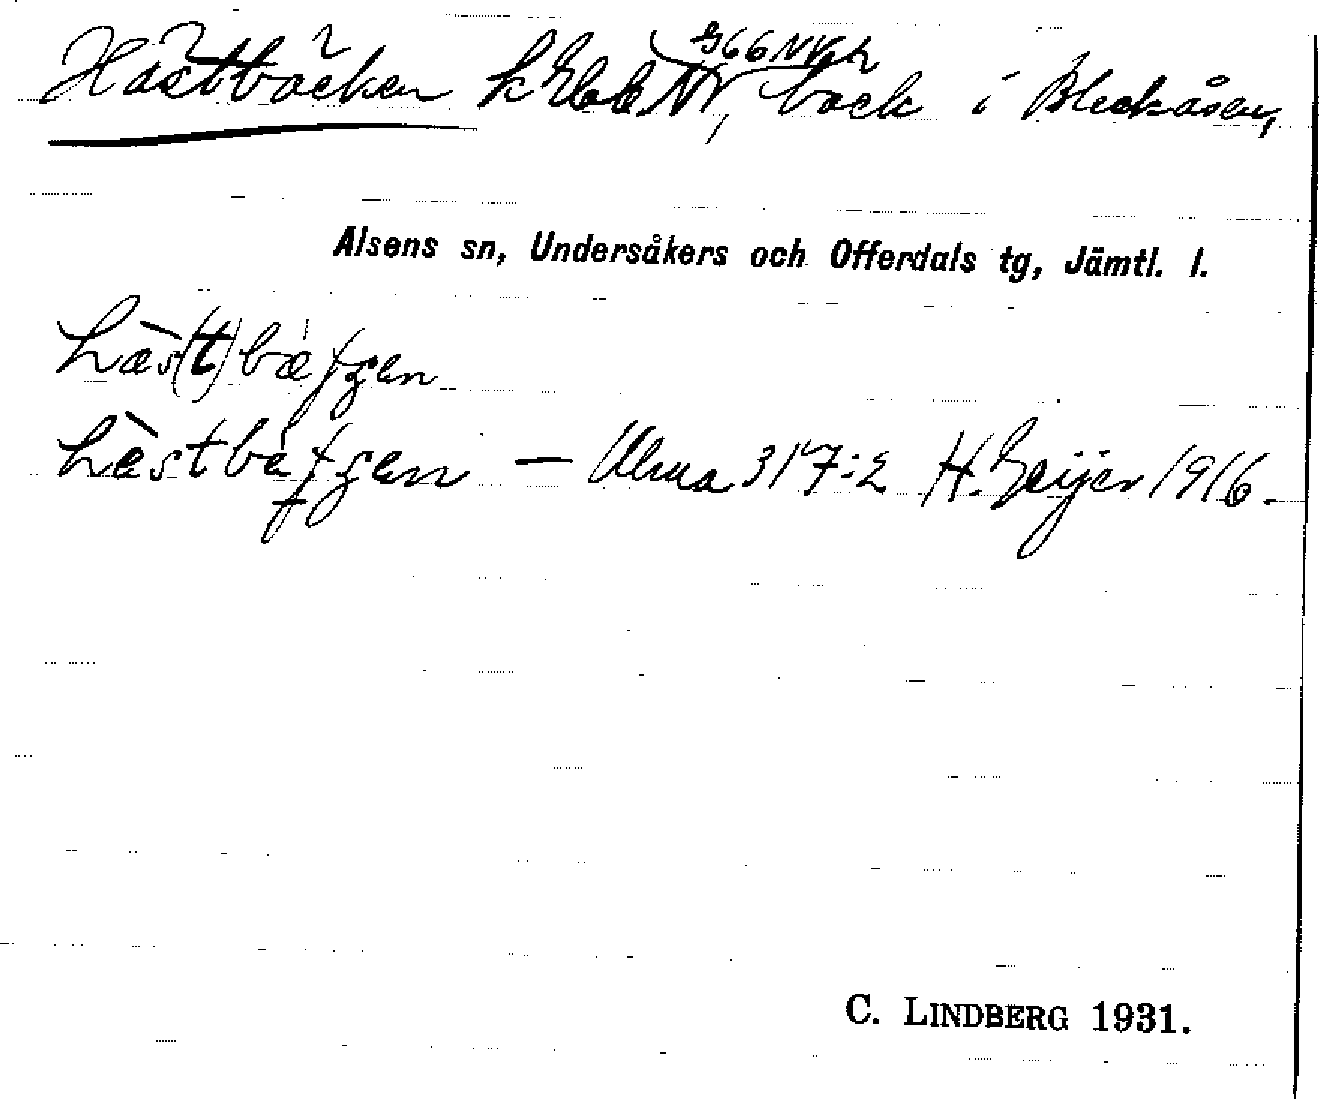 Hästbäcken k bäck i Bleckåsen,
Alsens sn, Undersåkers och Offerdals tg, Jämtl. l.
hæs(t)bæ
hæstbæ — Ulma 317:2 H. Geijer 1916.
C. LINDBERG 1931.